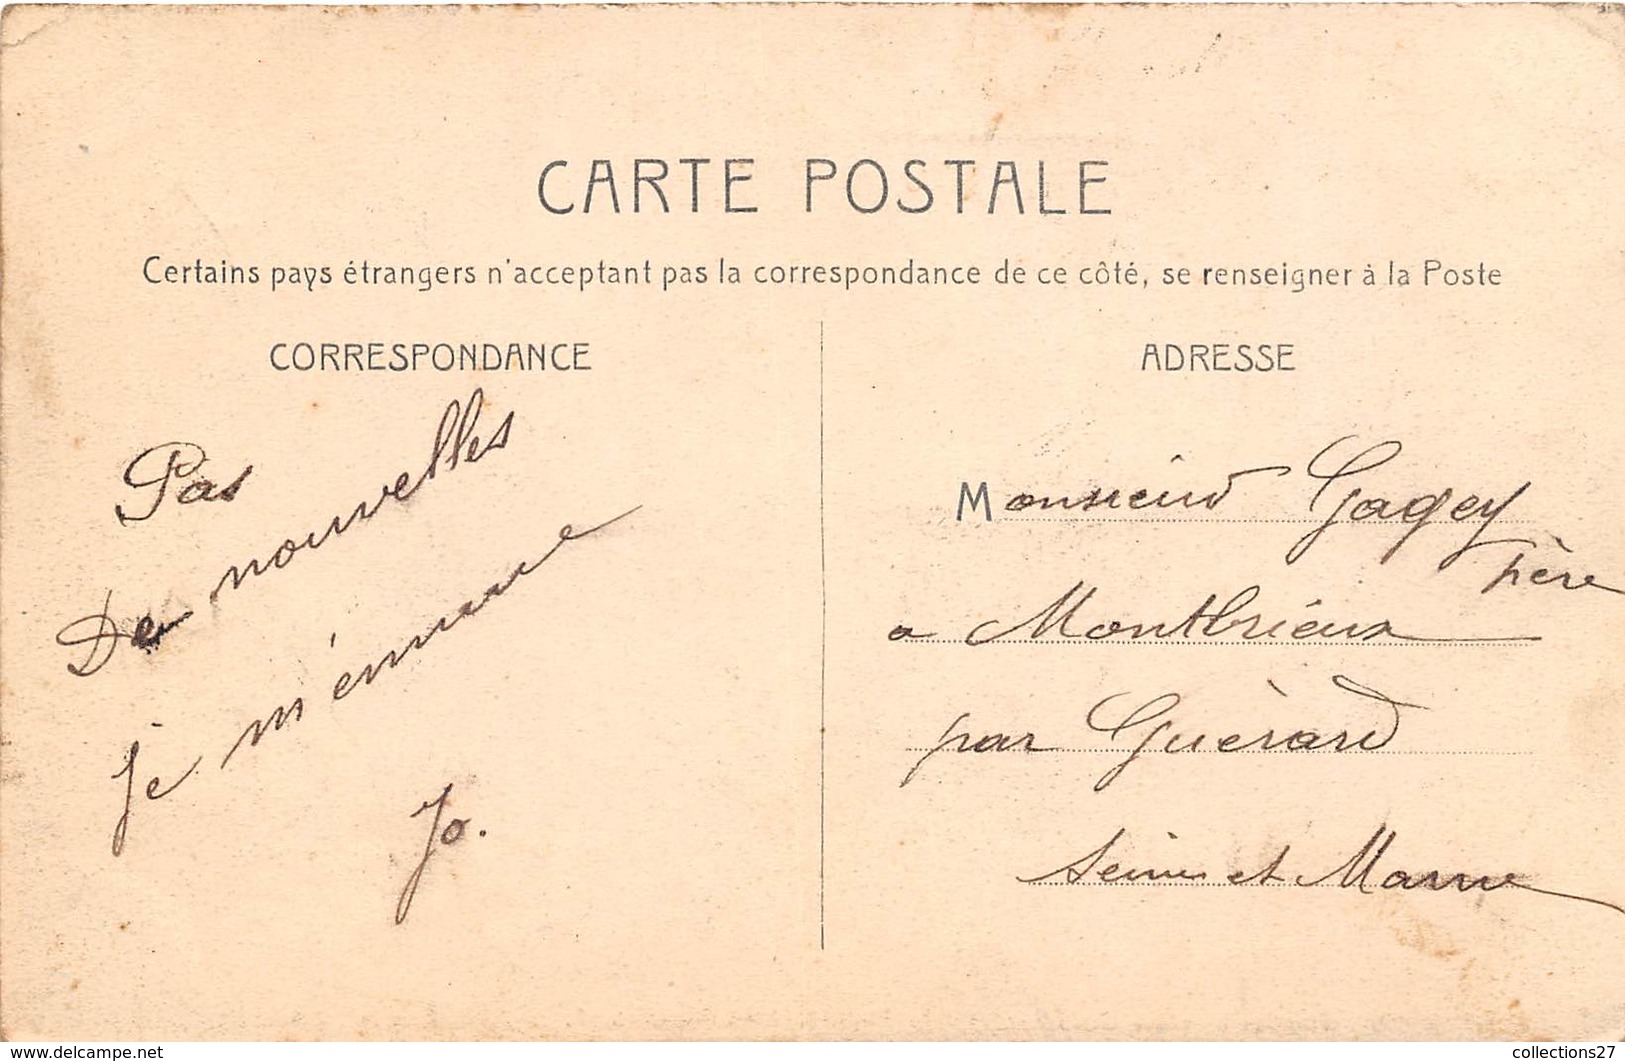 CARTE POSTALE
Certains pays étrangers n'acceptant pas la correspondance de ce côté, se renseigner à la Poste
CORRESPONDANCE
Pas
De nouvelles
je m'ennuie
Jo.
ADRESSE
Monsieur Gagey
père
a Montbrieux
par Guèrard
Seine et Marne
www.delcampe.net
collections27